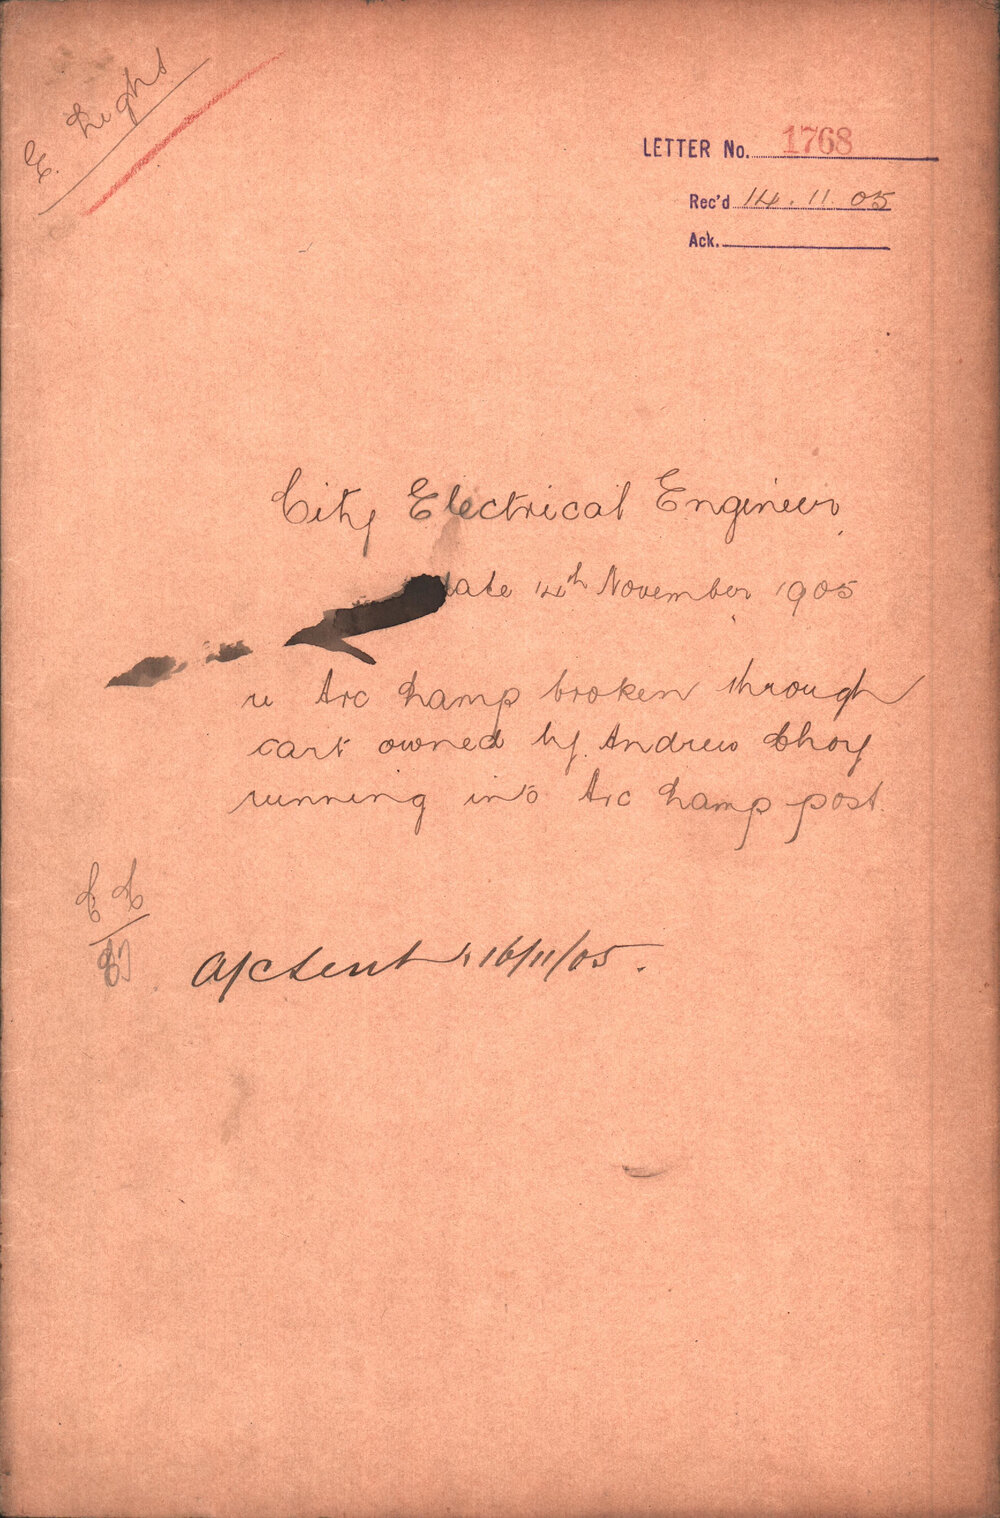 E. Light
LETTER No. 1768
Rec'd 14.11.05
Ack.
City Electrical Engineer
date 14th November 1905
re Arc Lamp broken through
cart owned by Andrew Choy
running into Arc Lamp post
A/c sent 16/11/05.